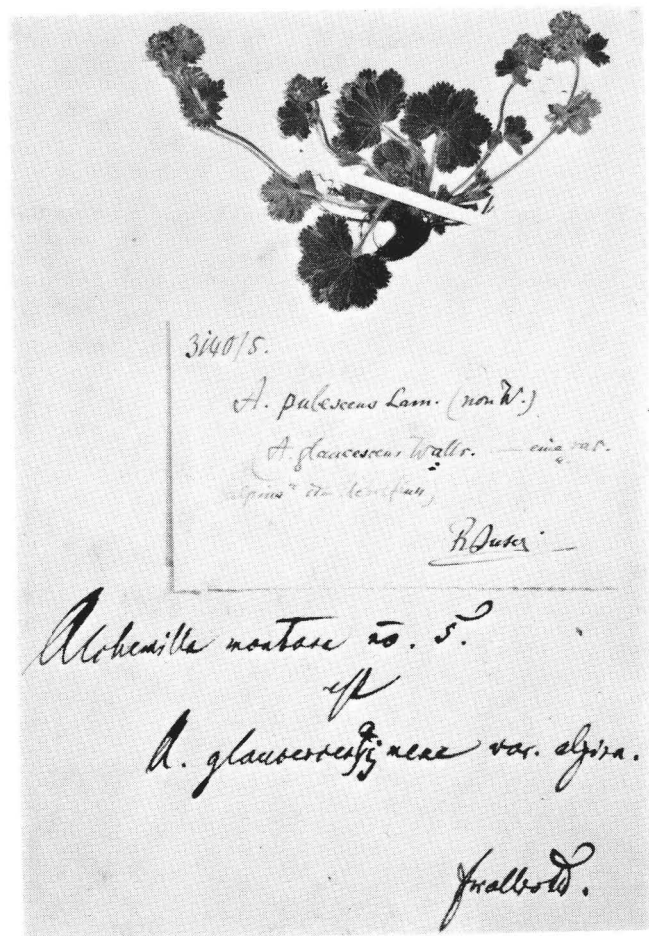 3140/5.
A. pubescens Lam. (non W.)
(A. glaucescens Wallr. — eine var.
alpina"
R Buser
Alchemilla montana no. 5.
est
A. glaucescentis meae var. alpina.
fwallroth.